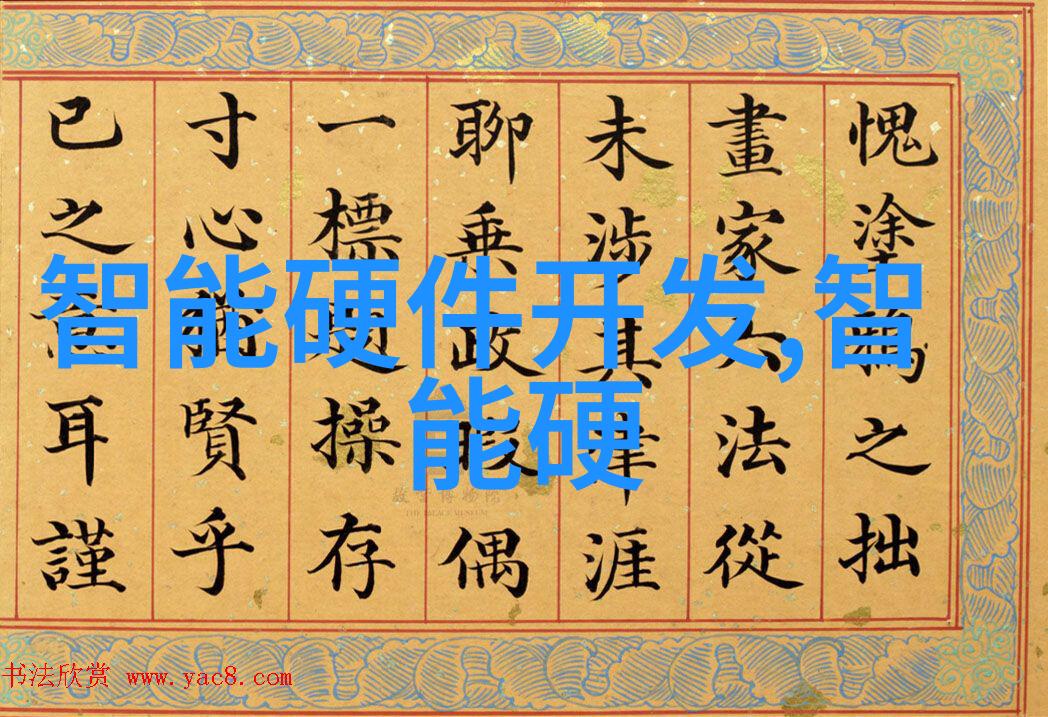 愧塗鴉之拙
畫家六法從
未涉其津涯
聊乘政暇偶
一標題操存
寸心猶賢乎
已之意耳謹
智能硬件开发,智
能硬
故宫博物院
THE PALACE MUSEUM
书法欣赏 www.yac8.com